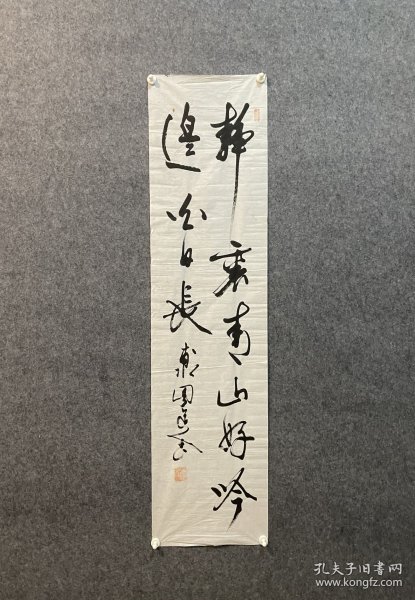 静裏青山好吟
邊白日長
孔夫子旧书网
www.kongfz.com